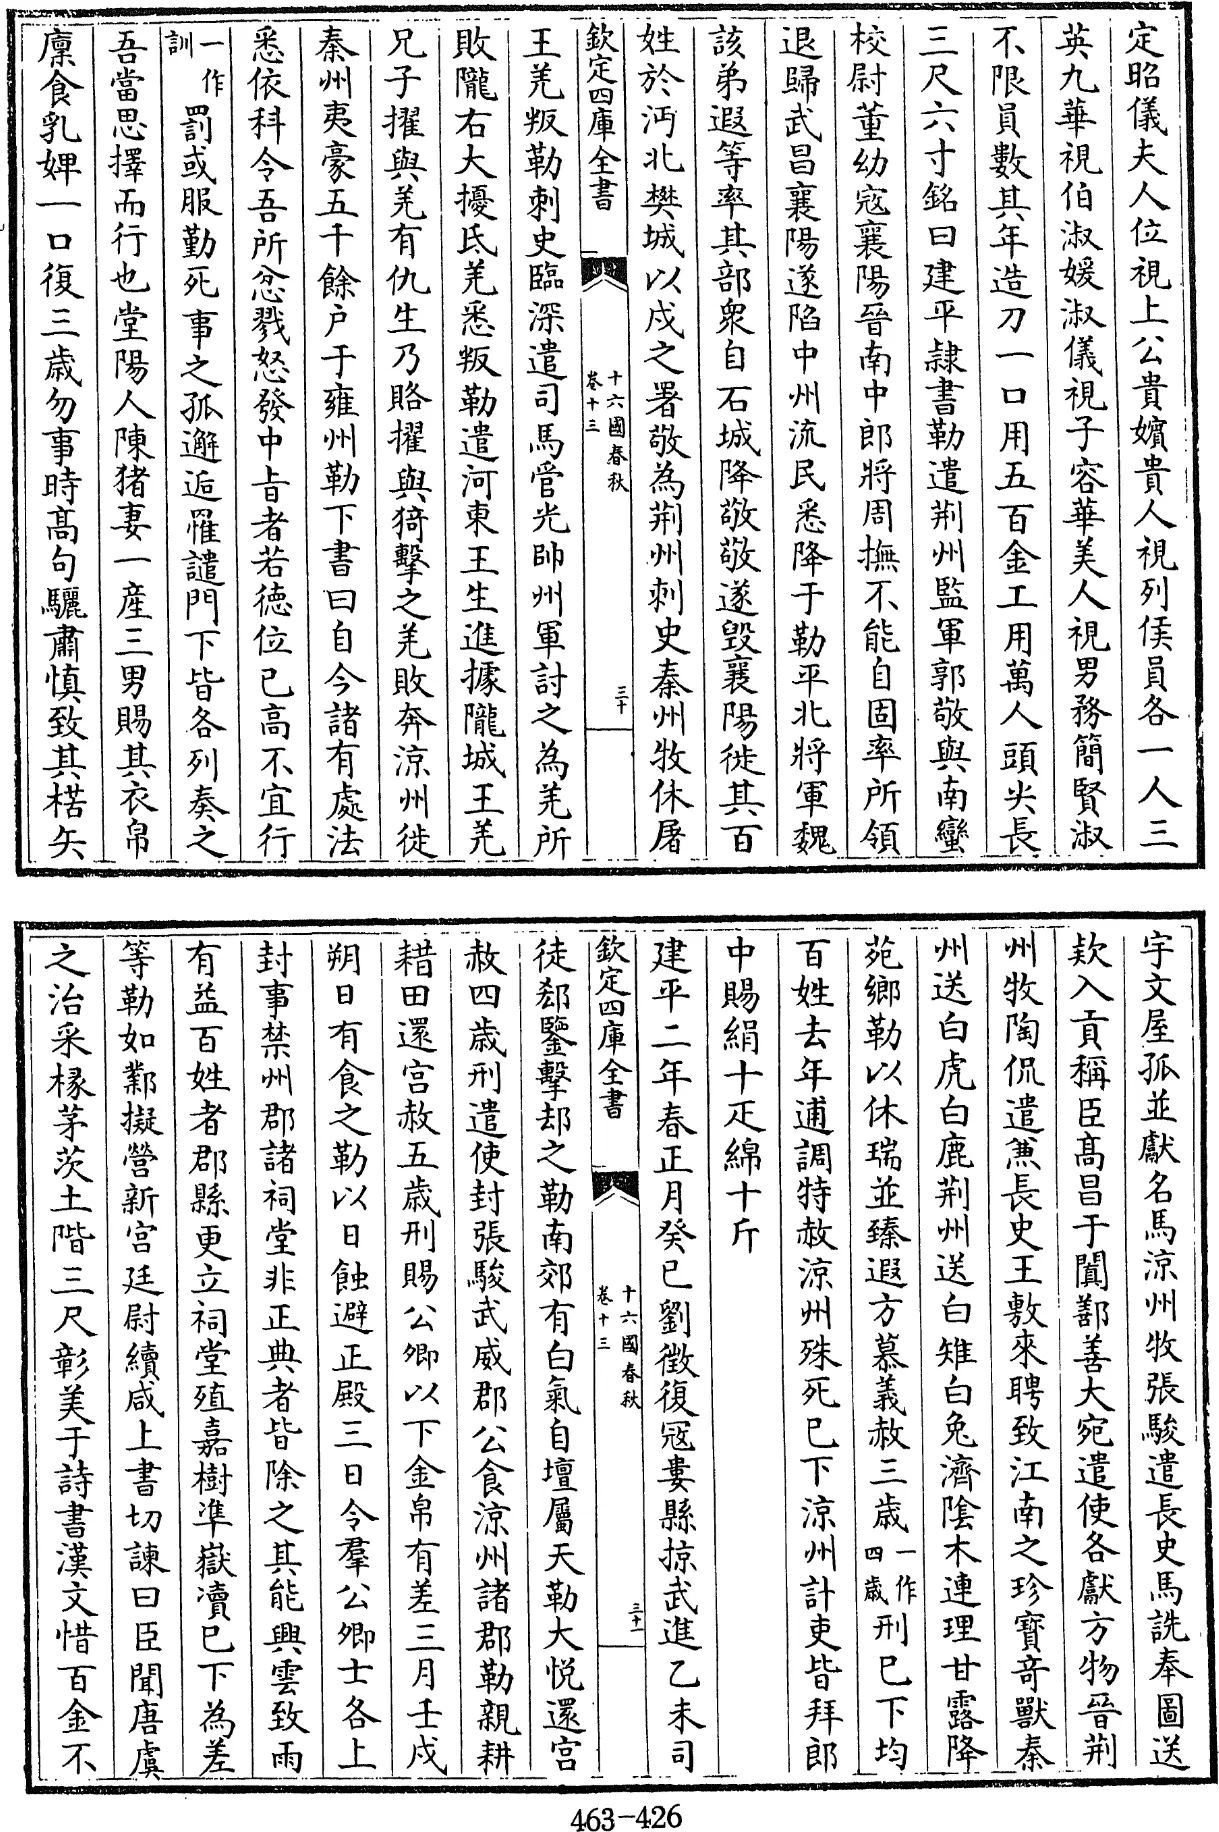 定昭儀夫人位視上公貴嬪貴人視列侯員各一人三
英九華視伯淑媛淑儀視子容華美人視男務簡賢淑
不限員數其年造刀一口用五百金工用萬人頭尖長
三尺六寸銘曰建平隷書勒遣荆州監軍郭敬與南蠻
校尉董幼寇襄陽晉南中郎將周撫不能自固率所領
退歸武昌襄陽遂陷中州流民悉降于勒平北將軍魏
該弟遐等率其部衆自石城降敬敬遂毁襄陽徙其百
姓於沔北樊城以戍之署敬為荆州刺史秦州牧休屠
欽定四庫全書
十六國春秋
卷十三
三十
王羌叛勒刺史臨深遣司馬管光帥州軍討之為羌所
敗隴右大擾氐羌悉叛勒遣河東王生進據隴城王羌
兄子擢與羌有仇生乃賂擢與猗擊之羌敗奔涼州徙
秦州夷豪五千餘户于雍州勒下書曰自今諸有處法
悉依科令吾所忿戮怒發中旨者若徳位已高不宜行
一作訓罰或服勤死事之孤邂逅罹譴門下皆各列奏之
吾當思擇而行也堂陽人陳猪妻一産三男賜其衣帛
廩食乳婢一口復三歲勿事時髙句驪肅慎致其楛矢
宇文屋孤並獻名馬涼州牧張駿遣長史馬詵奉圖送
欵入貢稱臣髙昌于闐鄯善大宛遣使各獻方物晉荆
州牧陶侃遣兼長史王敷來聘致江南之珍寳竒獸秦
州送白虎白鹿荆州送白雉白兔濟隂木連理甘露降
苑鄉勒以休瑞並臻遐方慕義赦三歲一作四歲刑已下均
百姓去年逋調特赦涼州殊死已下涼州計吏皆拜郎
中賜絹十疋綿十斤
建平二年春正月癸巳劉徵復寇婁縣掠武進乙未司
欽定四庫全書
十六國春秋
卷十三
三十一
徒郄鑒擊却之勒南郊有白氣自壇屬天勒大悦還宫
赦四歲刑遣使封張駿武威郡公食涼州諸郡勒親耕
耤田還宫赦五歲刑賜公卿以下金帛有差三月壬戌
朔日有食之勒以日蝕避正殿三日令羣公卿士各上
封事禁州郡諸祠堂非正典者皆除之其能興雲致雨
有益百姓者郡縣更立祠堂殖嘉樹凖嶽瀆已下為差
等勒如鄴擬營新宫廷尉續咸上書切諫曰臣聞唐虞
之治采椽茅茨土階三尺彰美于詩書漢文惜百金不
463-426